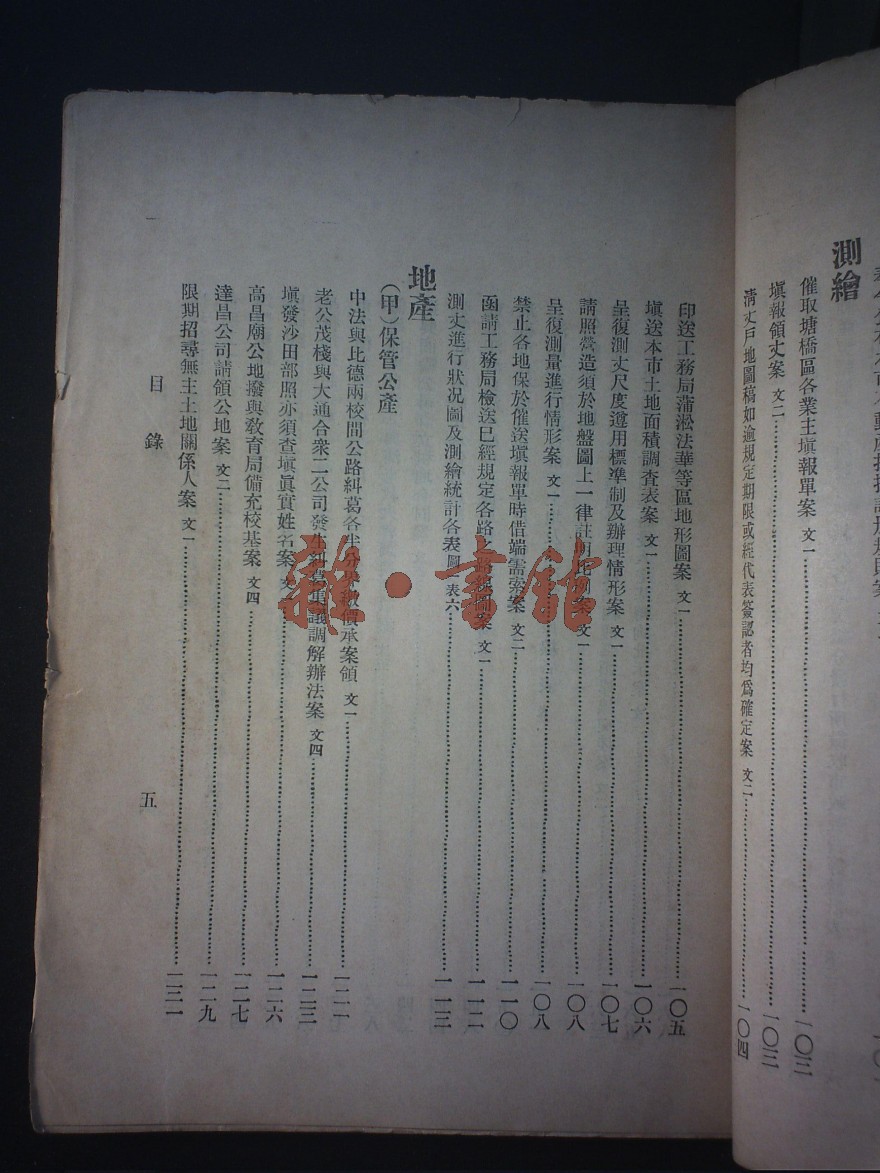 測繪
催取塘橋區各業主塡報單案 文一……一〇三
塡報領丈案 文二……一〇三
淸丈戶地圖稿如逾規定期限或經代表簽認者均爲確定案 文二……一〇四
印送工務局蒲淞法華等區地形圖案 文一……一〇五
塡送本市土地面積調查表案 文一……一〇六
呈復測丈尺度遵用標準制及辦理情形案 文一……一〇七
請照營造須於地盤圖上一律註明比例案 文一……一〇八
呈復測量進行情形案 文一……一〇八
禁止各地保於催送塡報單時借端需索案 文二……一一〇
函請工務局檢送已經規定各路路線圖案 文一……一一二
測丈進行狀况圖及測繪統計各表 圖一表六……一一三
地產
(甲)保管公產
中法與比德兩校間公路糾葛各半分 價承案領 文一……一二一
老公茂棧與大通合衆二公司發生糾葛 議調解辦法案 文四……一二三
塡發沙田部照亦須查塡眞實姓名案 文……一二六
高昌廟公地撥與敎育局備充校基案 文四……一二七
達昌公司請領公地案 文二……一二九
限期招尋無主土地關係人案 文一……一三一
目錄
五
雜·書館